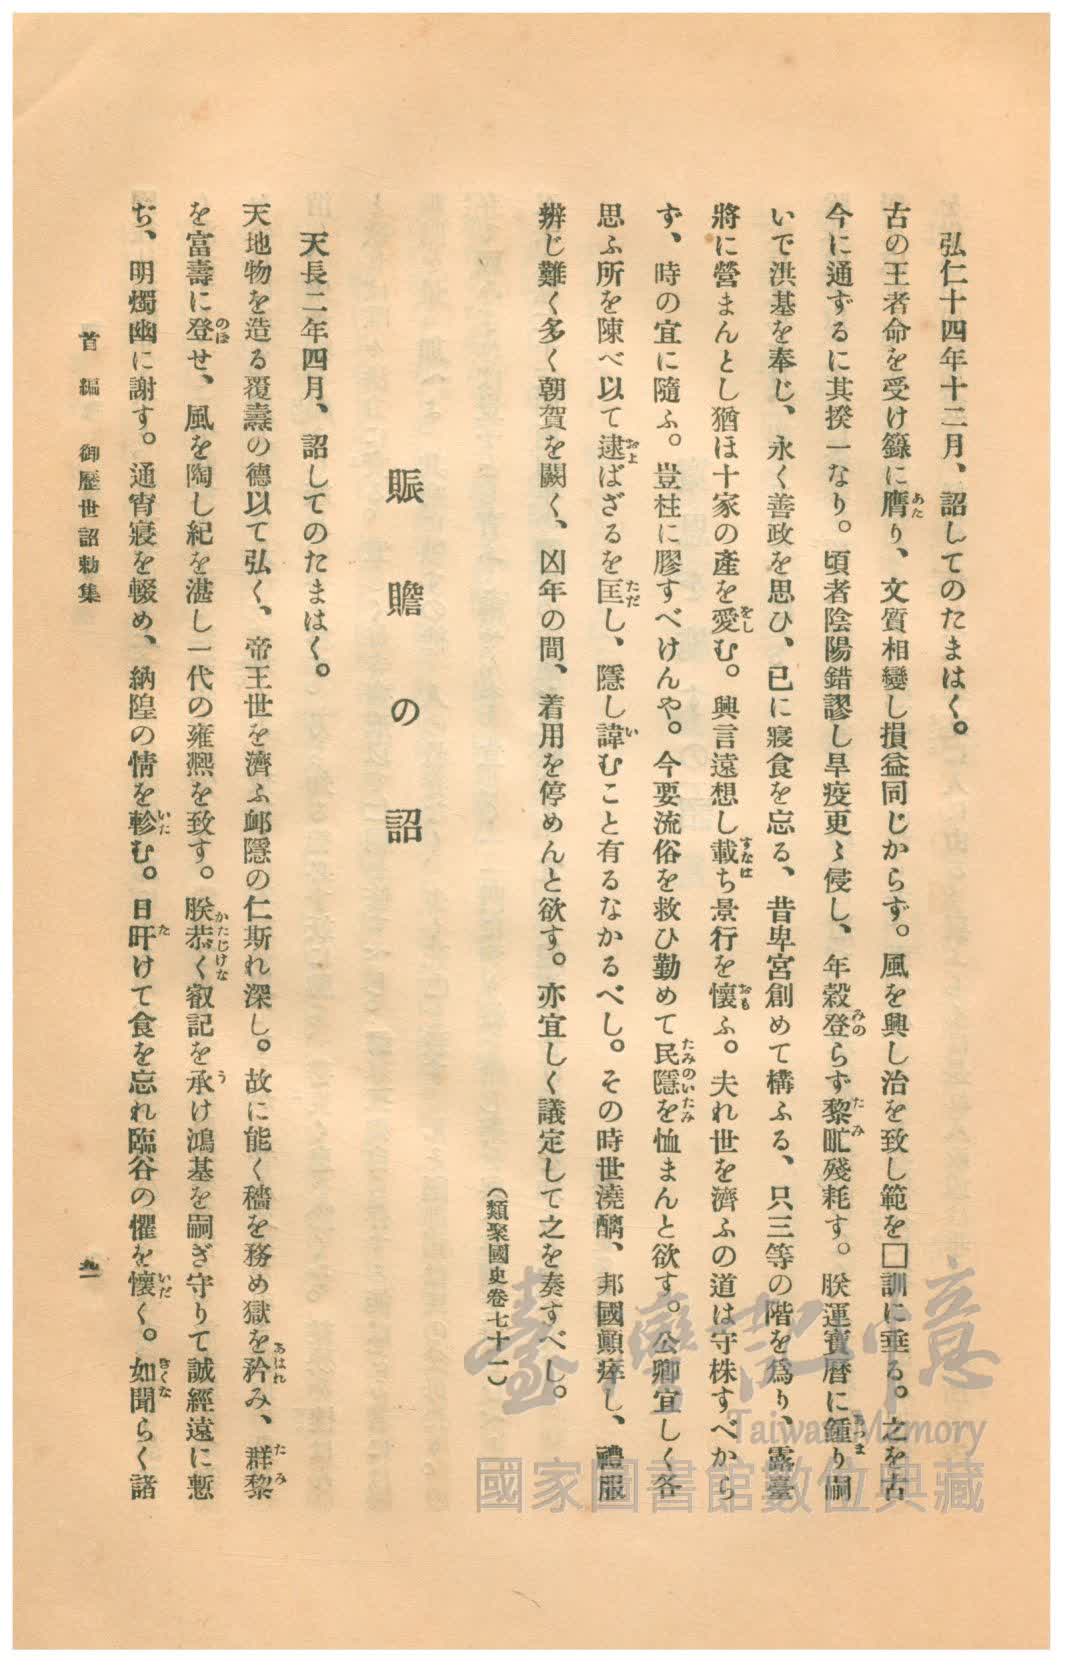 弘仁十四年十二月、詔してのたまはく。
古の王者命を受け籙に膺り、文質相變し損益同じからず。風を興し治を致し範を□訓に垂る。之を古
今に通ずるに其揆一なり。頃者陰陽錯謬し旱疫更〻侵し、年穀登らず黎甿殘耗す。朕運寶曆に鍾り嗣
いで洪基を奉じ、永く善政を思ひ、已に寢食を忘る、昔卑宮創めて構ふる、只三等の階を爲り、露臺
將に營まんとし猶ほ十家の產を愛む。興言遠想し載ち景行を懷ふ。夫れ世を濟ふの道は守株すべから
ず、時の宜に隨ふ。豈柱に膠すべけんや。今要流俗を救ひ勤めて民隱を恤まんと欲す。公卿宜しく各
思ふ所を陳べ以て逮ばざるを匡し、隱し諱むこと有るなかるべし。その時世澆醨、邦國顚瘁し、禮服
辨じ難く多く朝賀を闕く、凶年の間、着用を停めんと欲す。亦宜しく議定して之を奏すべし。
(類聚國史卷七十一)
賑贍の詔
天長二年四月、詔してのたまはく。
天地物を造る覆燾の德以て弘く、帝王世を濟ふ衈隱の仁斯れ深し。故に能く穡を務め獄を矜み、群黎
を富壽に登せ、風を陶し紀を湛し一代の雍熙を致す。朕恭く叡記を承け鴻基を嗣ぎ守りて誠經遠に慙
ぢ、明燭幽に謝す。通宵寢を輟め、納隍の情を軫む。日旰けて食を忘れ臨谷の懼を懷く。如聞らく諸
首編 御歷世詔勅集
九一
臺灣記憶
Taiwan Memory
國家圖書館數位典藏